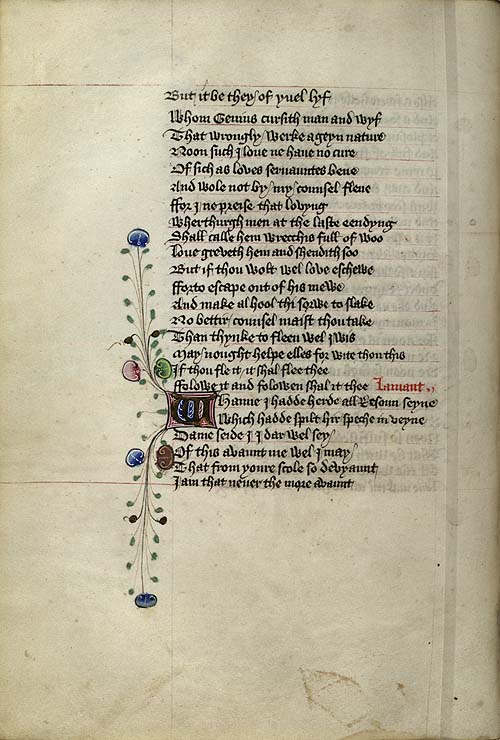 But it be they of yuel lyf
Whom Genius cursith man and wyf
That wrongly werke ageyn nature
Noon such I love ne have no cure
Of sich as loves servauntes bene
And wole not by my counsel flene
ffor I ne preise that lovyng
Wherthurgh men at the laste eendyng
Shall calle hem wrecchis full of woo
Love greveth hem and shendith soo
But if thou wolt wel love eschewe
fforto escape out of his mewe
And make al hool thi sorwe to slake
No bettir counsel maist thou take
Than thynke to fleen wel iwis
May nought helpe elles for wite thou this
If thou fle it it shal flee thee
ffolowe it and folowen shal it thee Lamant
Whanne I hadde herde all Resoun seyne
Which hadde spilt hir speche in veyne
Dame seide I I dar wel sey
Of this avaunt me wel I may
That from youre scole so devyaunt
I am that never the more avaunt